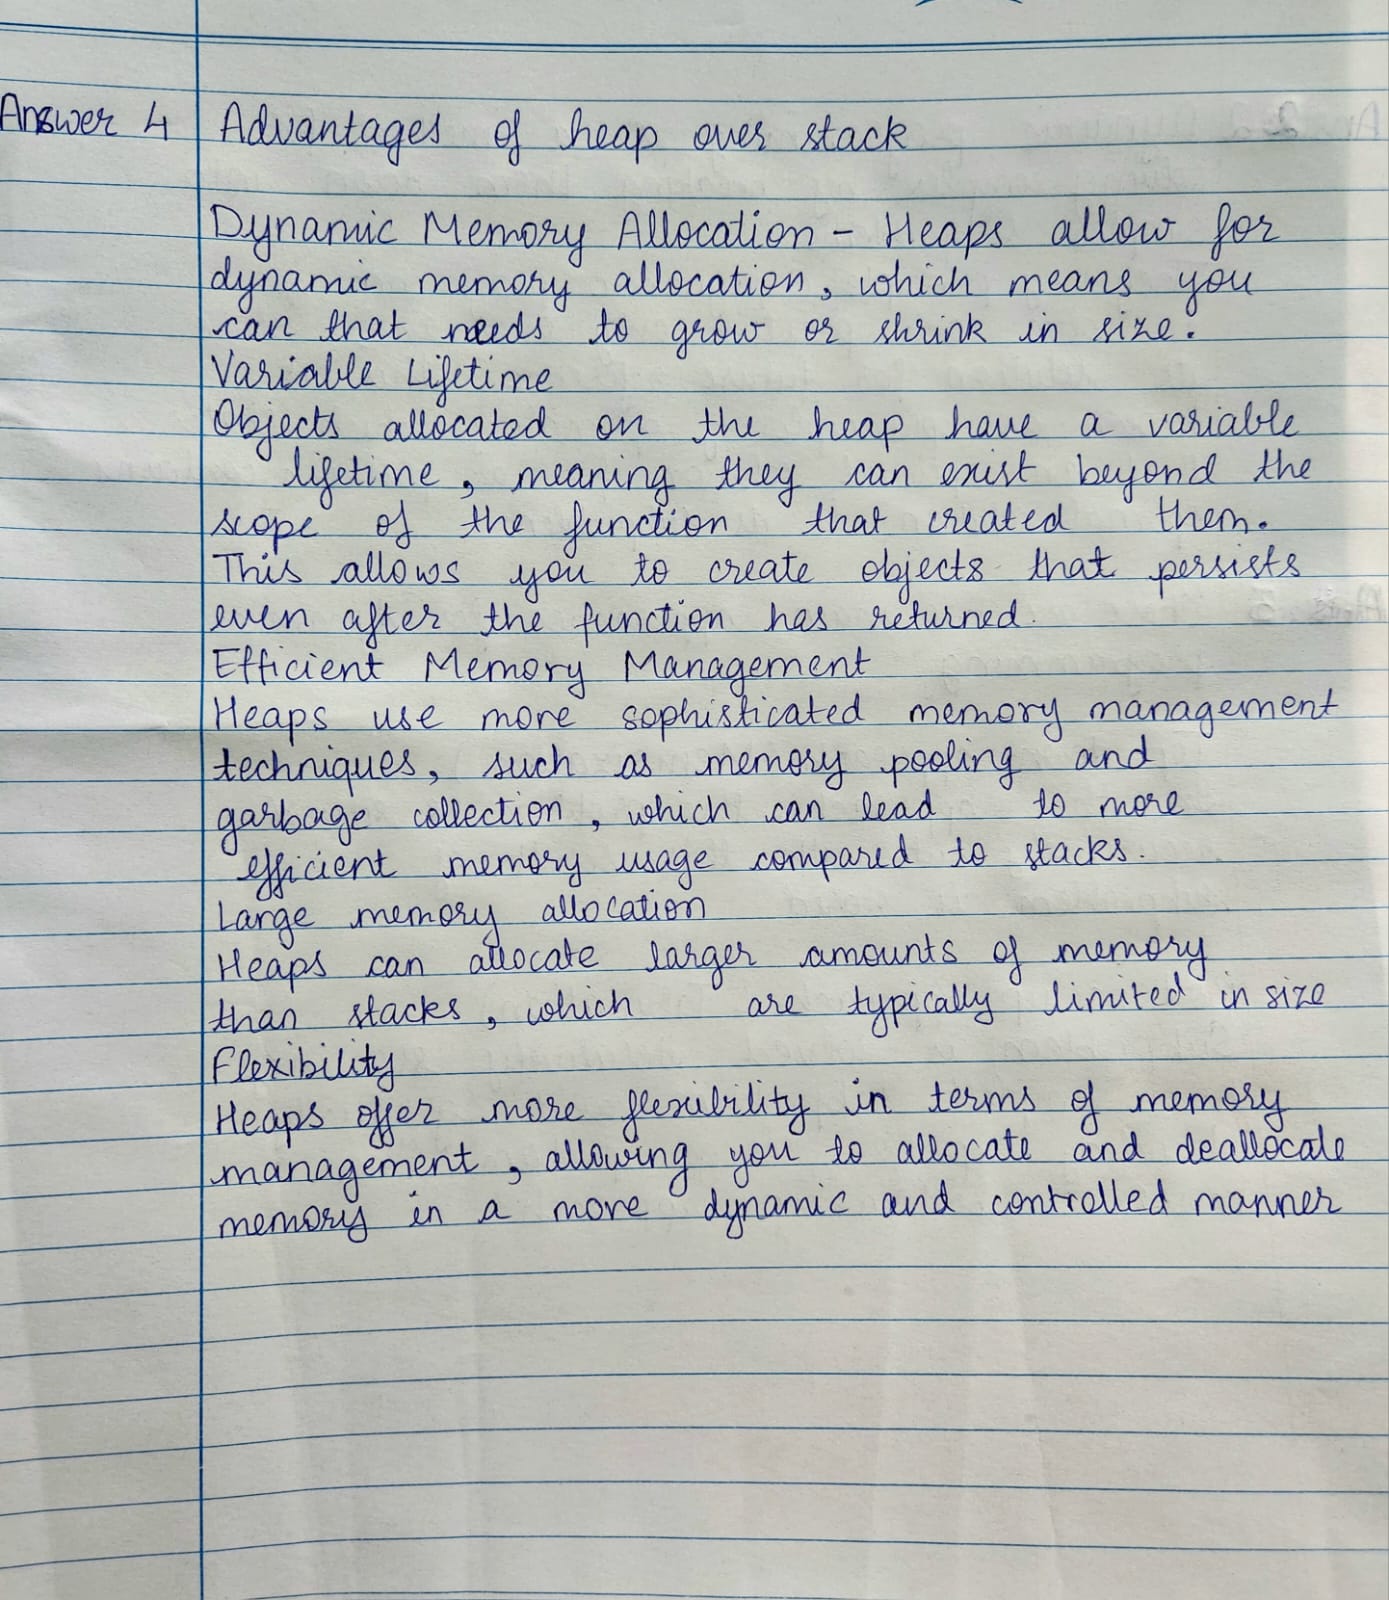 Answer 4 Advantages of heap over stack
Dynamic Memory Allocation - Heaps allow for
dynamic memory allocation, which means you
can that needs to grow or shrink in size.
Variable Lifetime
Objects allocated on the heap have a variable
lifetime, meaning they can exist beyond the
scope of the function that created them.
This allows you to create objects that persists
even after the function has returned.
Efficient Memory Management
Heaps use more sophisticated memory management
techniques, such as memory pooling and
garbage collection, which can lead to more
efficient memory usage compared to stacks.
Large memory allocation
Heaps can allocate larger amounts of memory
than stacks, which are typically limited in size
Flexibility
Heaps offer more flexibility in terms of memory
management, allowing you to allocate and deallocate
memory in a more dynamic and controlled manner